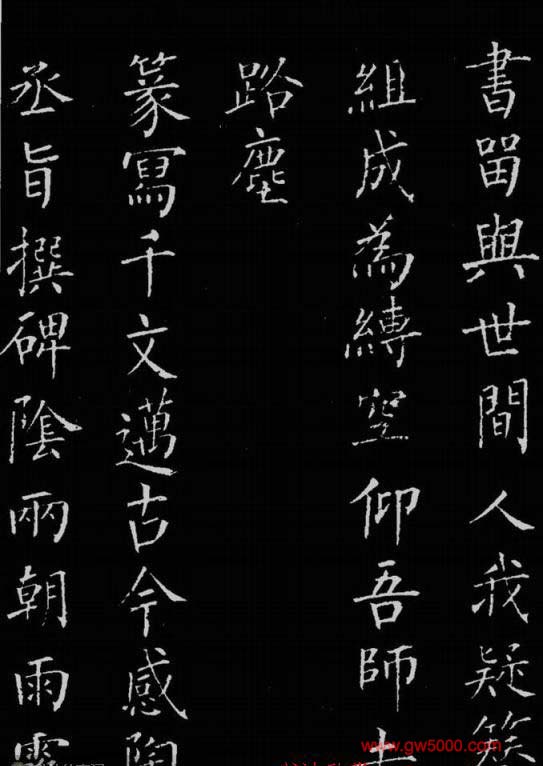 書留與世間人我疑簇
組成為縛空仰吾師
路塵
篆寫千文邁古今感陶
丞旨撰碑陰兩朝雨露
www.gw5000.com